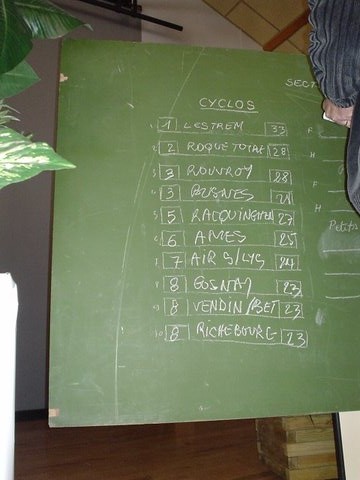 SECT
CYCLOS
1 LESTREM 33
2 ROQUETOIRE 28
3 ROUVROY 28
3 BUSNES 28
5 RACQUINGHEM 27
6 AMES 25
7 AIR S/LYS 24
8 GOSNAY 23
8 VENDIN/BET 23
8 RICHEBOURG 23
F
H
F
H
Petits